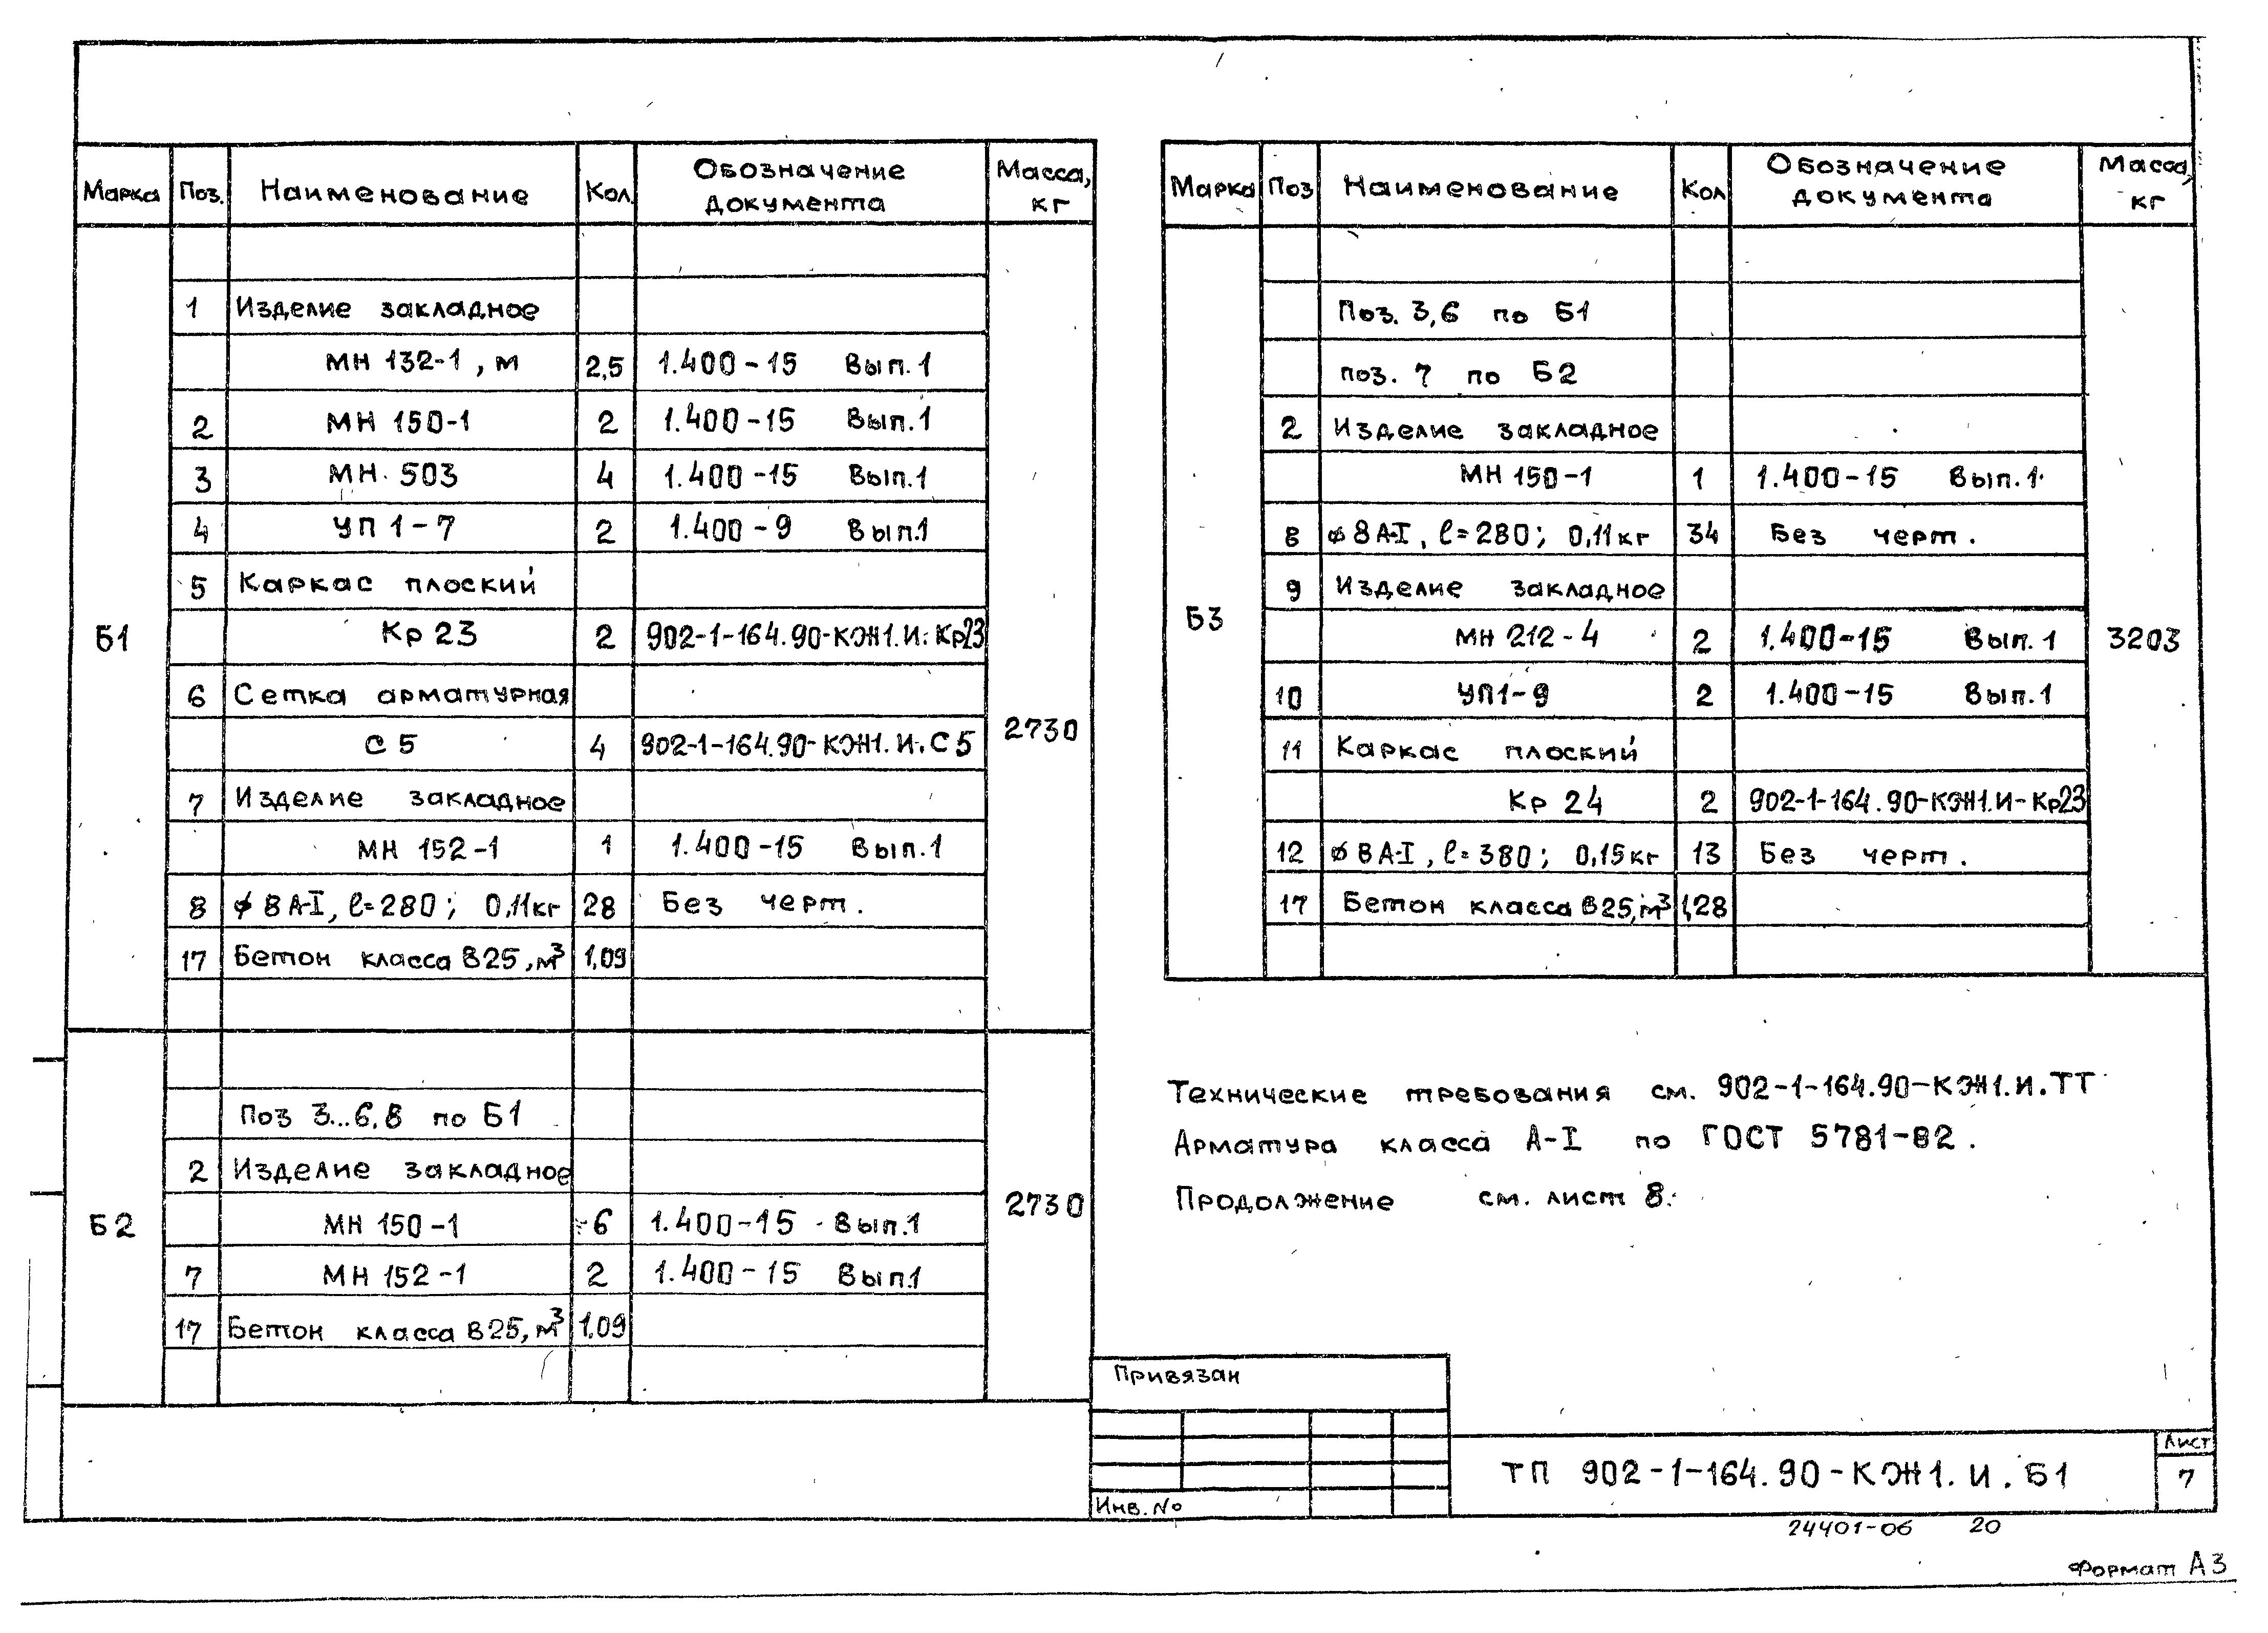 Марка Поз. Наименование Кол. Обозначение документа Масса, кг
Б1 2730
1 Изделие закладное
МН 132-1, м 2,5 1.400-15 Вып.1
2 МН 150-1 2 1.400-15 Вып.1
3 МН 503 4 1.400-15 Вып.1
4 УП 1-7 2 1.400-9 Вып.1
5 Каркас плоский
Кр 23 2 902-1-164.90-КЖ1.И.Кр23
6 Сетка арматурная
С 5 4 902-1-164.90-КЖ1.И.С5
7 Изделие закладное
МН 152-1 1 1.400-15 Вып.1
8 ϕ8А-I, ℓ=280; 0,11кг 28 Без черт.
17 Бетон класса В25, м³ 1,09
Б2 2730
Поз 3...6,8 по Б1
2 Изделие закладное
МН 150-1 6 1.400-15 Вып.1
7 МН 152-1 2 1.400-15 Вып.1
17 Бетон класса В25, м³ 1,09
Марка Поз Наименование Кол Обозначение документа Масса, кг
Б3 3203
Поз. 3,6 по Б1
поз. 7 по Б2
2 Изделие закладное
МН 150-1 1 1.400-15 Вып.1
8 ϕ8А-I, ℓ=280; 0,11кг 34 Без черт.
9 Изделие закладное
МН 212-4 2 1.400-15 Вып.1
10 УП1-9 2 1.400-15 Вып.1
11 Каркас плоский
Кр 24 2 902-1-164.90-КЖ1.И-Кр23
12 ϕ8А-I, ℓ=380; 0,15кг 13 Без черт.
17 Бетон класса В25, м³ 1,28
Технические требования см. 902-1-164.90-КЖ1.И.ТТ
Арматура класса А-I по ГОСТ 5781-82.
Продолжение см. лист 8.
Привязан
Инв. №
ТП 902-1-164.90-КЖ1.И.Б1
Лист
7
24401-06 20
Формат А3